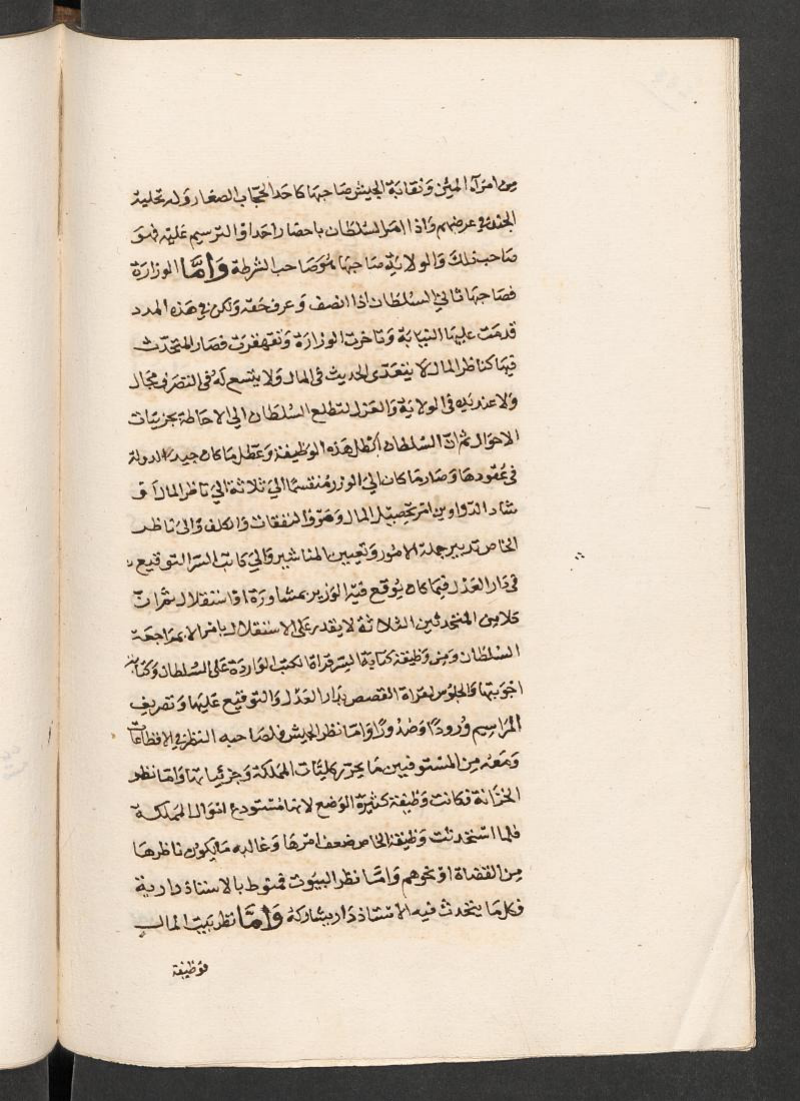 من امراء المئين ونقابة الجيش صاحبها كاحد الحجاب الصغار وله تحلية
الجند في عرضهم واذا امر السلطان باحضار احد او الترسيم عليه فهو
صاحب ذلك والولاية صاحبها هو صاحب الشرطة واما الوزارة
فصاحبها ثاني السلطان اذا انصف وعرف حقه ولكن في هذه المدد
قدمت عليها النيابة وتاخرت الوزارة وتقهقرت فصار المتحدث
فيها كناظر المال لا يتعدى الحديث في المال ولا يتسع له في التصرف مجال
ولا عند يده في الولاية والعزل لتطلع السلطان الي الاحاطة بجزيات
الاحوال ثم ان السلطان ابطل هذه الوظيفة وعطل ما كان جيد الدولة
في عقودها وصار ما كان الي الوزير منقسما الي ثلاثة الي ناظر المال او
شاد الدواوين امر تحصيل المال وصرف النفقات والكلف والى ناظر
الخاص تدبير جملة الامور وتعيين المناشير والي كاتب السر التوقيع
في دار العدل فيما كان يوقع فيه الوزير بمشاورة او استقلال ثم ان
كلا من المتحدثين الثلاثة لا يقدر على الاستقلال بامر الا بمراجعة
السلطان ومن وظيفة كتابة السر قراة الكتب الواردة على السلطان وكتابة
اجوبتها والجلوس لقراة القصص بدار العدل والتوقيع عليها وتصريف
المراسيم ورودا وصدورا واما نظر الجيش فلصاحبه النظر في الاقطاعات
ومعه من المستوفيين ما يحرر كليات المملكة وجزئياتها واما نظر
الخزانة فكانت وظيفة كثيرة الوضع لانها مستودع اموال المملكة
فلما استحدثت وظيفة الخاص ضعف امرها وغالب ما يكون ناظرها
من القضاة او نحوهم واما نظر البيوت فمنوط بالاستاذ دارية
وكل ما يتحدث فيه الاستاذ دار يشاركه واما نظر بيت المال
فوظيفة